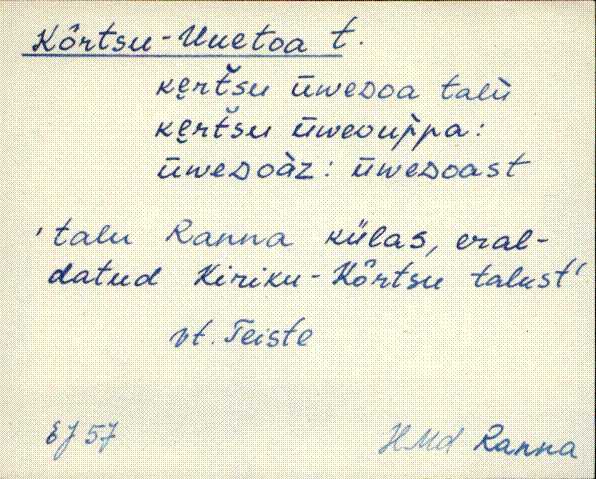 Kôrtsu-Uuetoa t.
kęrt̆su ūweᴅoa talù
kęrt̆su ūweᴅuìppa:
ūweᴅoàz: ūweᴅoast
'talu Ranna külas, eral-
datud Kiriku-Kôrtsu talust'
vt. Teiste
EJ 57
HMd Ranna